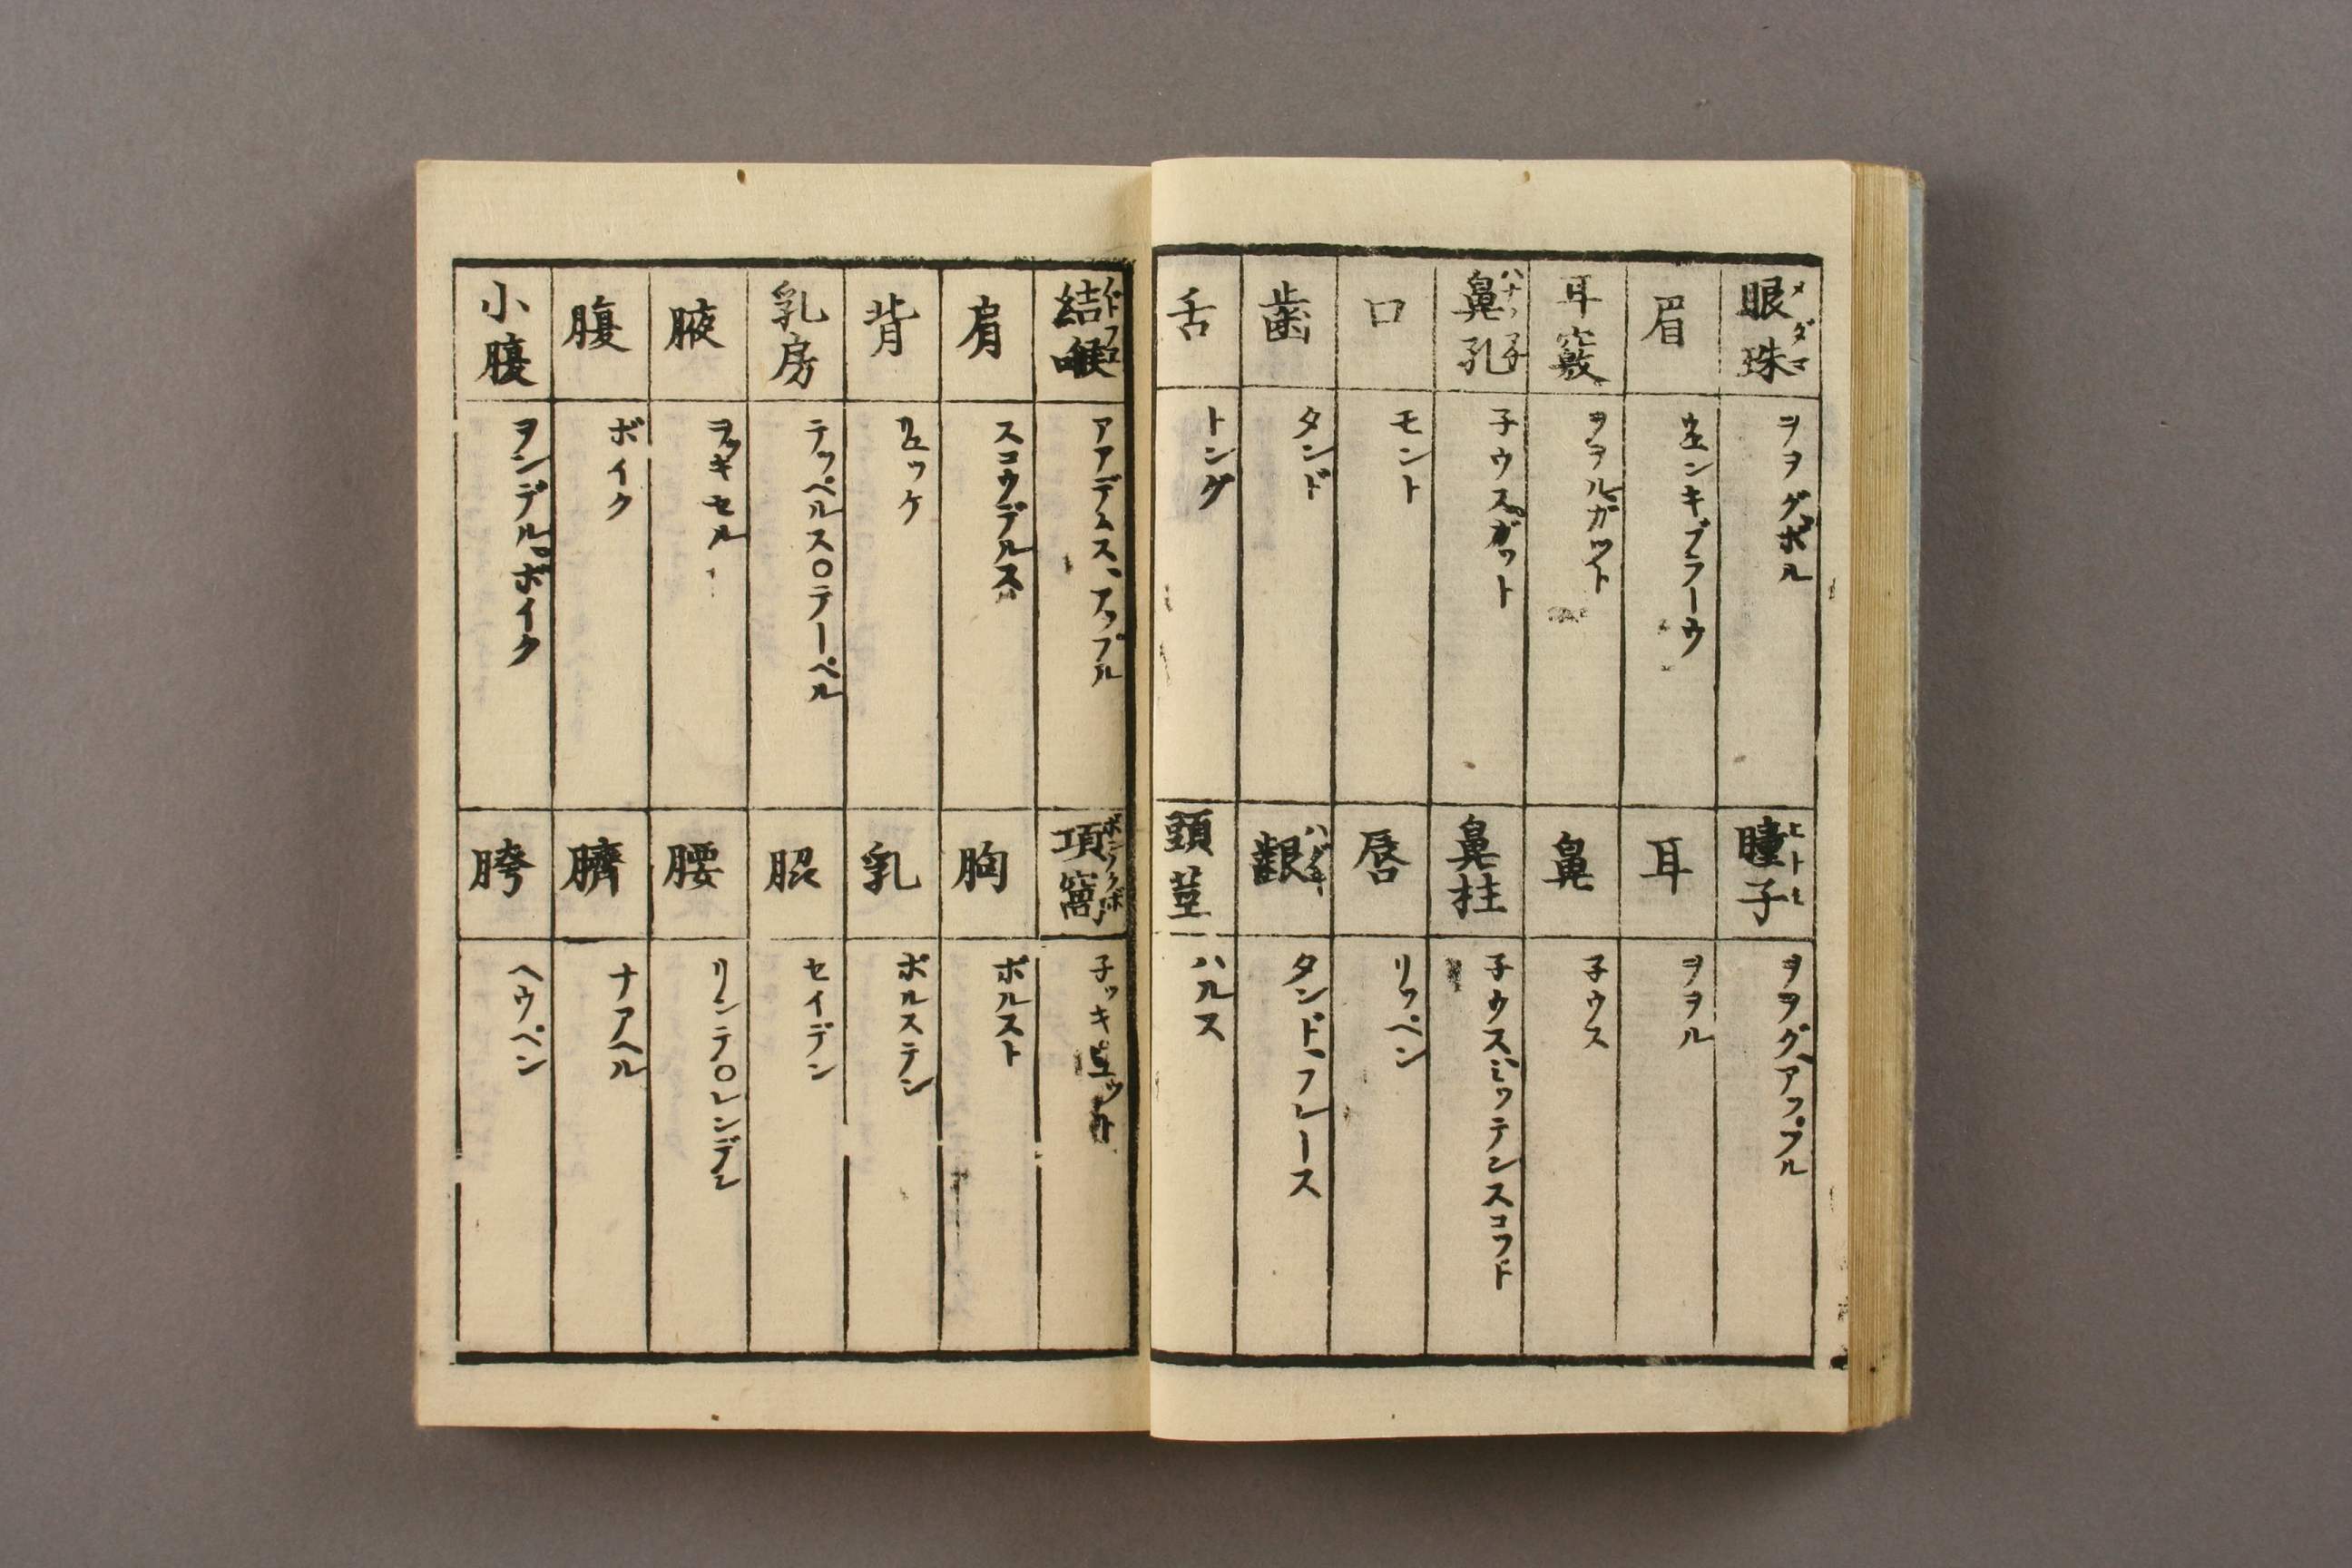 眼珠 メダマ
ヲヲグ、ボル
眉
ウエンキブラーウ
耳竅
ヲヲルガット
鼻孔 ハナノ
子ウスガット
口
モント
歯
タンド
舌
トング
瞳子 ヒトミ
ヲヲグ、アップル
耳
ヲヲル
鼻
子ウス
鼻柱
子ウスミッテンスコットド
唇
リッペン
齦 ハグキ
タンド、フレース
頸莖
ハルス
結喉 ノドフエ
アアデムス、アップル
肩
スコウデルス
背
リュッケ
乳房
テッペルス○テーペル
腋
ヲッキセル
腹
ボイク
小腹
ヲンデル。ボイク
項窩 ボンノクボ
子ッキ
胸
ボルスト
乳
ボルステン
䐊
セイデン
腰
リンテ○レンデン
臍
ナアヘル
胯
ヘウペン